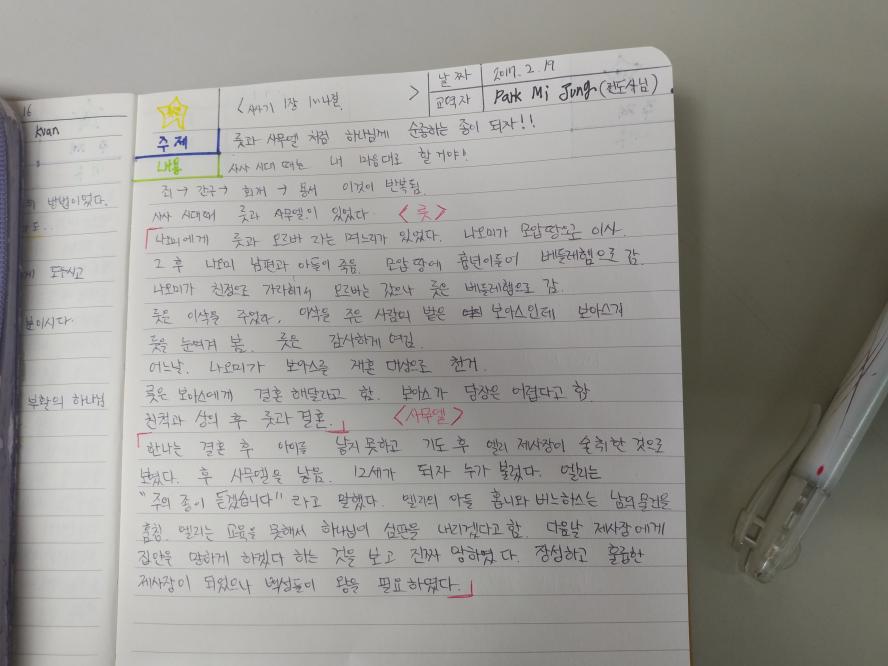 16
Kvan
의 방법이었다.
게 도우시고
분이시다.
부활의 하나님
<사사기 1장 1~4절 >
날짜 2017. 2. 19
교역자 Park Mi Jung (전도사님)
주제 룻과 사무엘 처럼 하나님께 순종하는 종이 되자!!
내용 사사 시대 때는 내 마음대로 할거야!
죄 → 간구 → 회개 → 용서 이것이 반복됨.
사사 시대때 룻과 사무엘이 있었다. <룻>
나오미에게 룻과 오르바 라는 며느리가 있었다. 나오미가 모압땅으로 이사.
그 후 나오미 남편과 아들이 죽음. 모압 땅에 흉년이들어 베들레헴으로 감.
나오미가 친정으로 가라하여 오르바는 갔으나 룻은 베들레헴으로 감.
룻은 이삭을 주웠다. 이삭을 주은 사람의 밭은 보아스인데 보아스가
룻을 눈여겨 봄. 룻은 감사하게 여김.
어느날. 나오미가 보아스를 재혼 대상으로 천거.
룻은 보아스에게 결혼 해달라고 함. 보아스가 당장은 어렵다고 함.
친척과 상의 후 룻과 결혼. <사무엘>
한나는 결혼 후 아이를 낳지 못하고 기도 후 엘리 제사장이 술취한 것으로
보였다. 후 사무엘을 낳음. 12세가 되자 누가 불렀다. 엘리는
"주의 종이 듣겠습니다" 라고 말했다. 엘리의 아들 홉니와 비느하스는 남의 물건을
훔침. 엘리는 교육을 못해서 하나님이 심판을 내리겠다고 함. 다음날 제사장에게
집안을 망하게 하겠다 하는 것을 보고 진짜 망하였다. 장성하고 훌륭한
제사장이 되었으나 백성들이 왕을 필요하였다.